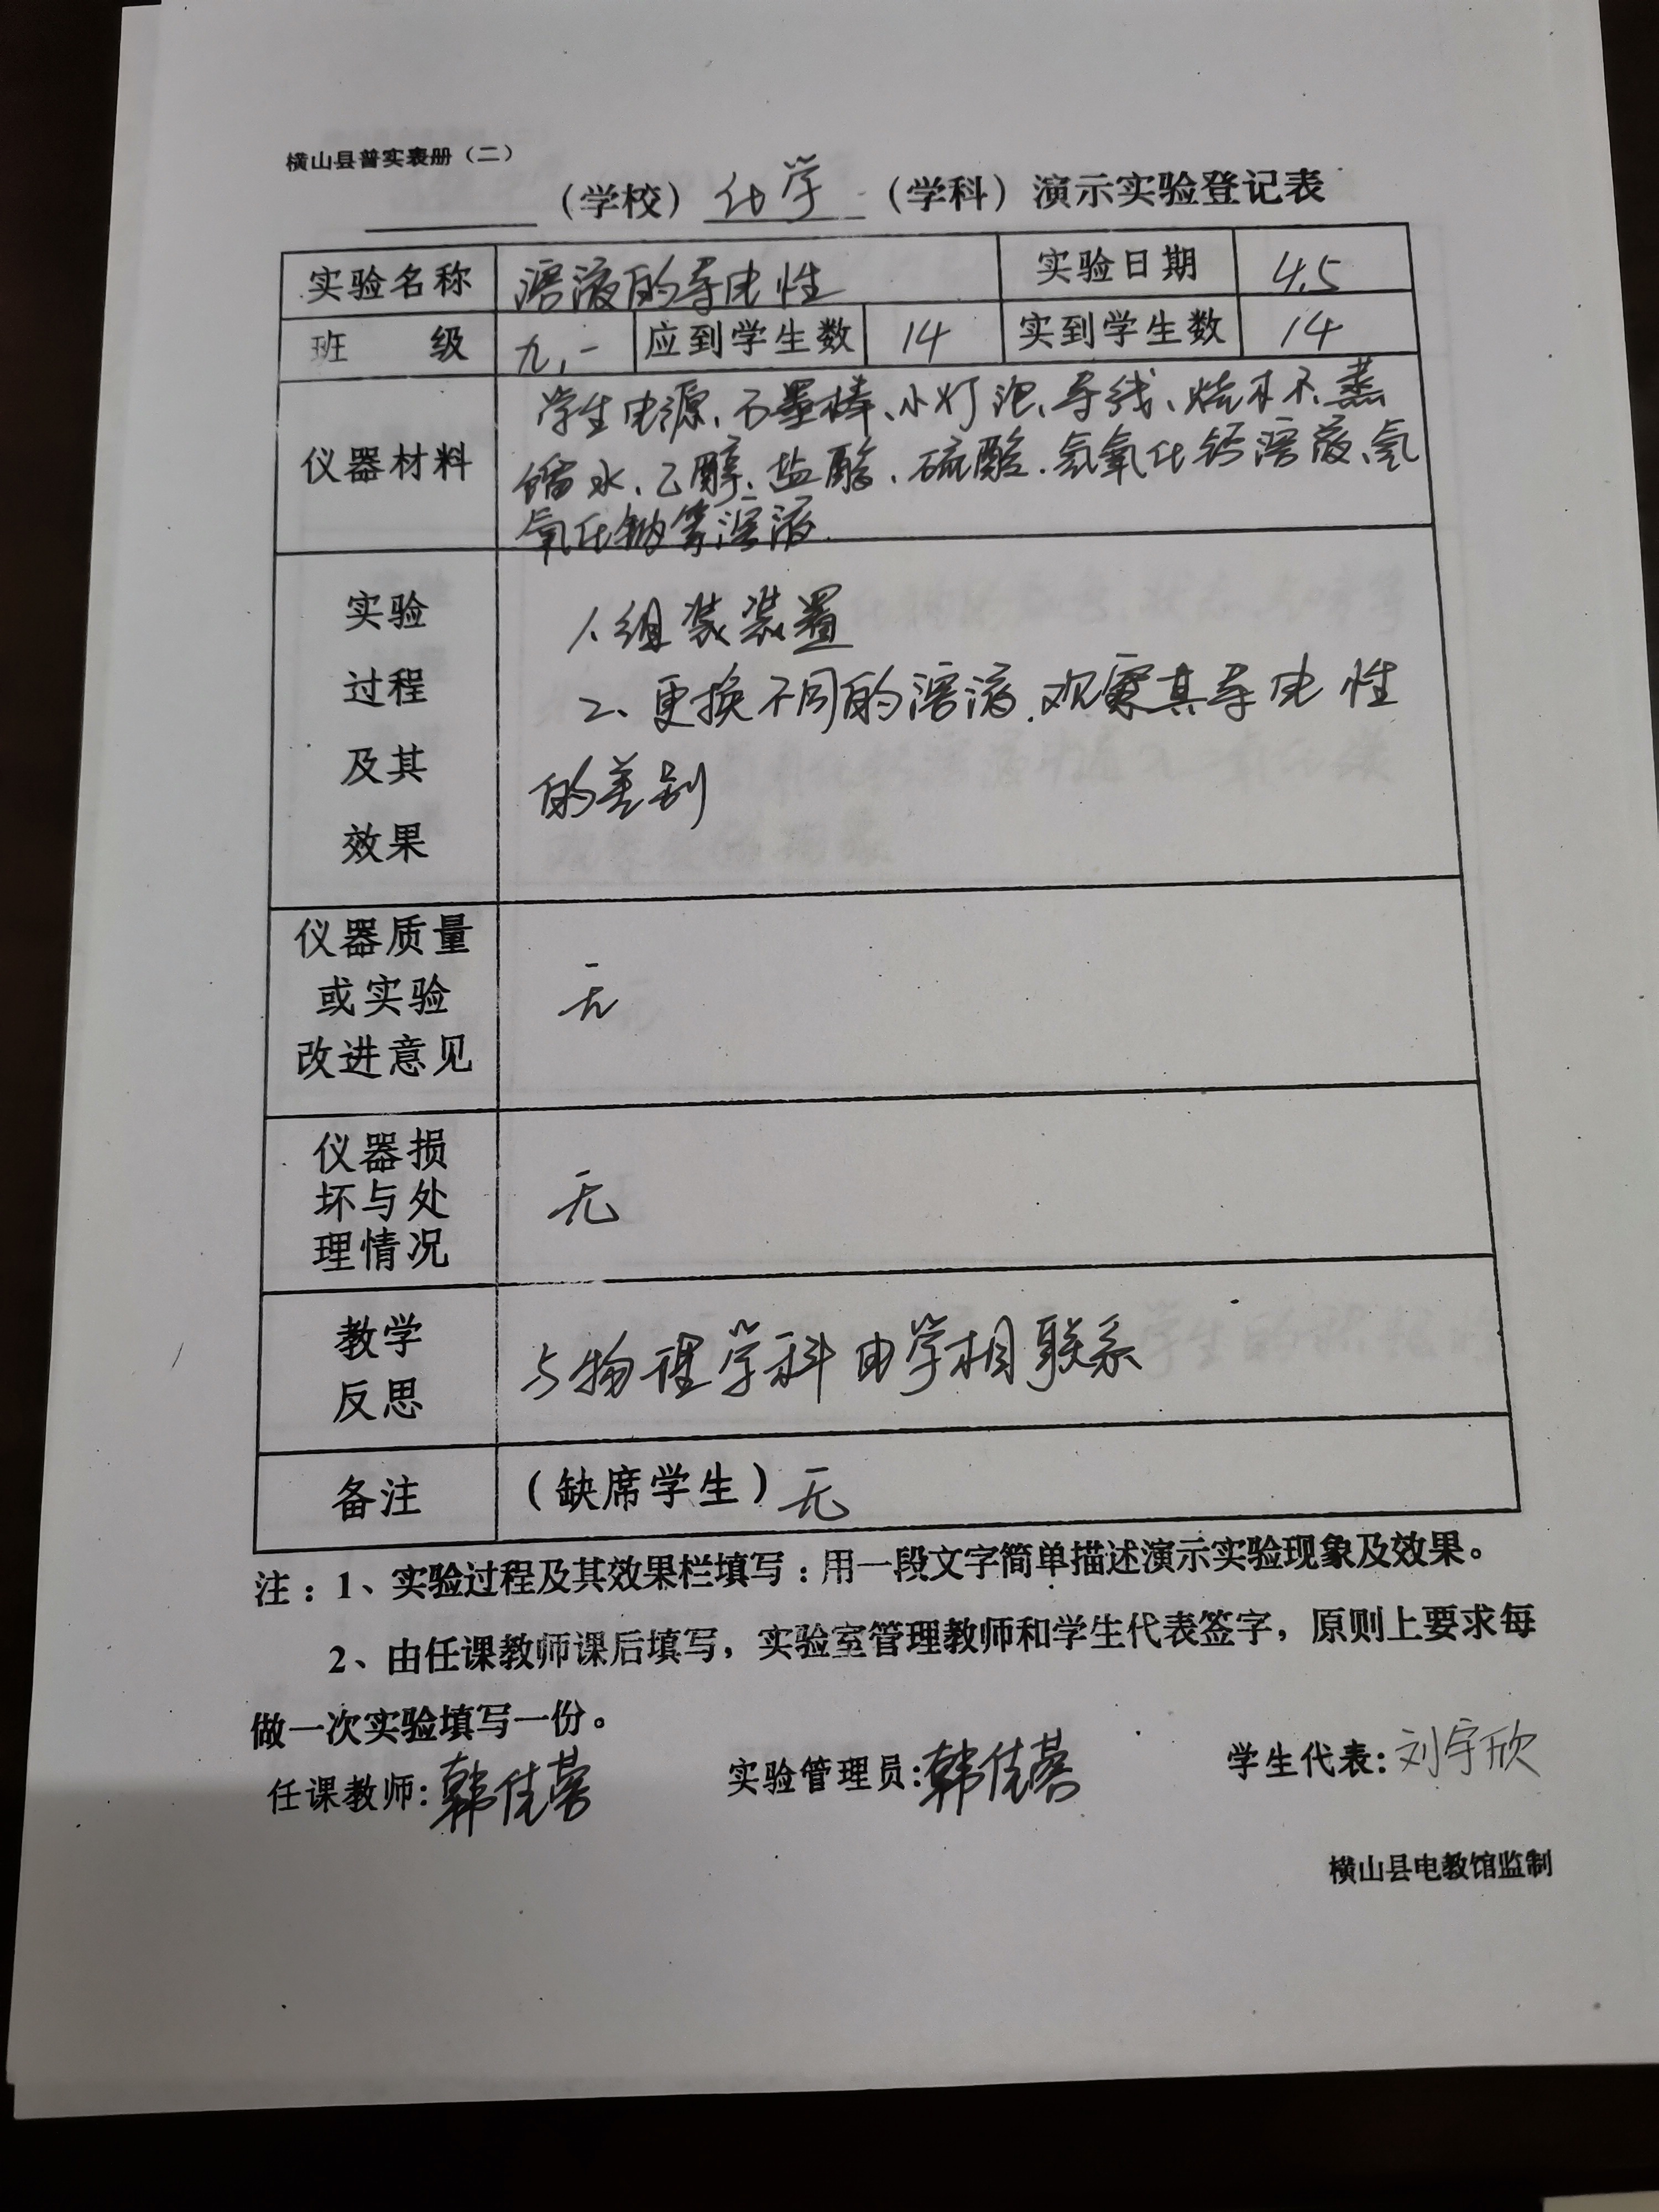 横山县普实表册（二）
（学校）化学（学科）演示实验登记表
实验名称 溶液的导电性 实验日期 4.5
班 级 九.一 应到学生数 14 实到学生数 14
仪器材料
学生电源、石墨棒、小灯泡、导线、烧杯、蒸
馏水、乙醇、盐酸、硫酸、氢氧化钙溶液、氢
氧化钠等溶液.
实验
过程
及其
效果
1、组装装置
2、更换不同的溶液.观察其导电性
的差别
仪器质量
或实验
改进意见
无
仪器损
坏与处
理情况
无
教学
反思
与物理学科电学相联系
备注 （缺席学生）无
注：1、实验过程及其效果栏填写：用一段文字简单描述演示实验现象及效果。
2、由任课教师课后填写，实验室管理教师和学生代表签字，原则上要求每
做一次实验填写一份。
任课教师: 韩佳蓉 实验管理员: 韩佳蓉 学生代表: 刘宇欣
横山县电教馆监制